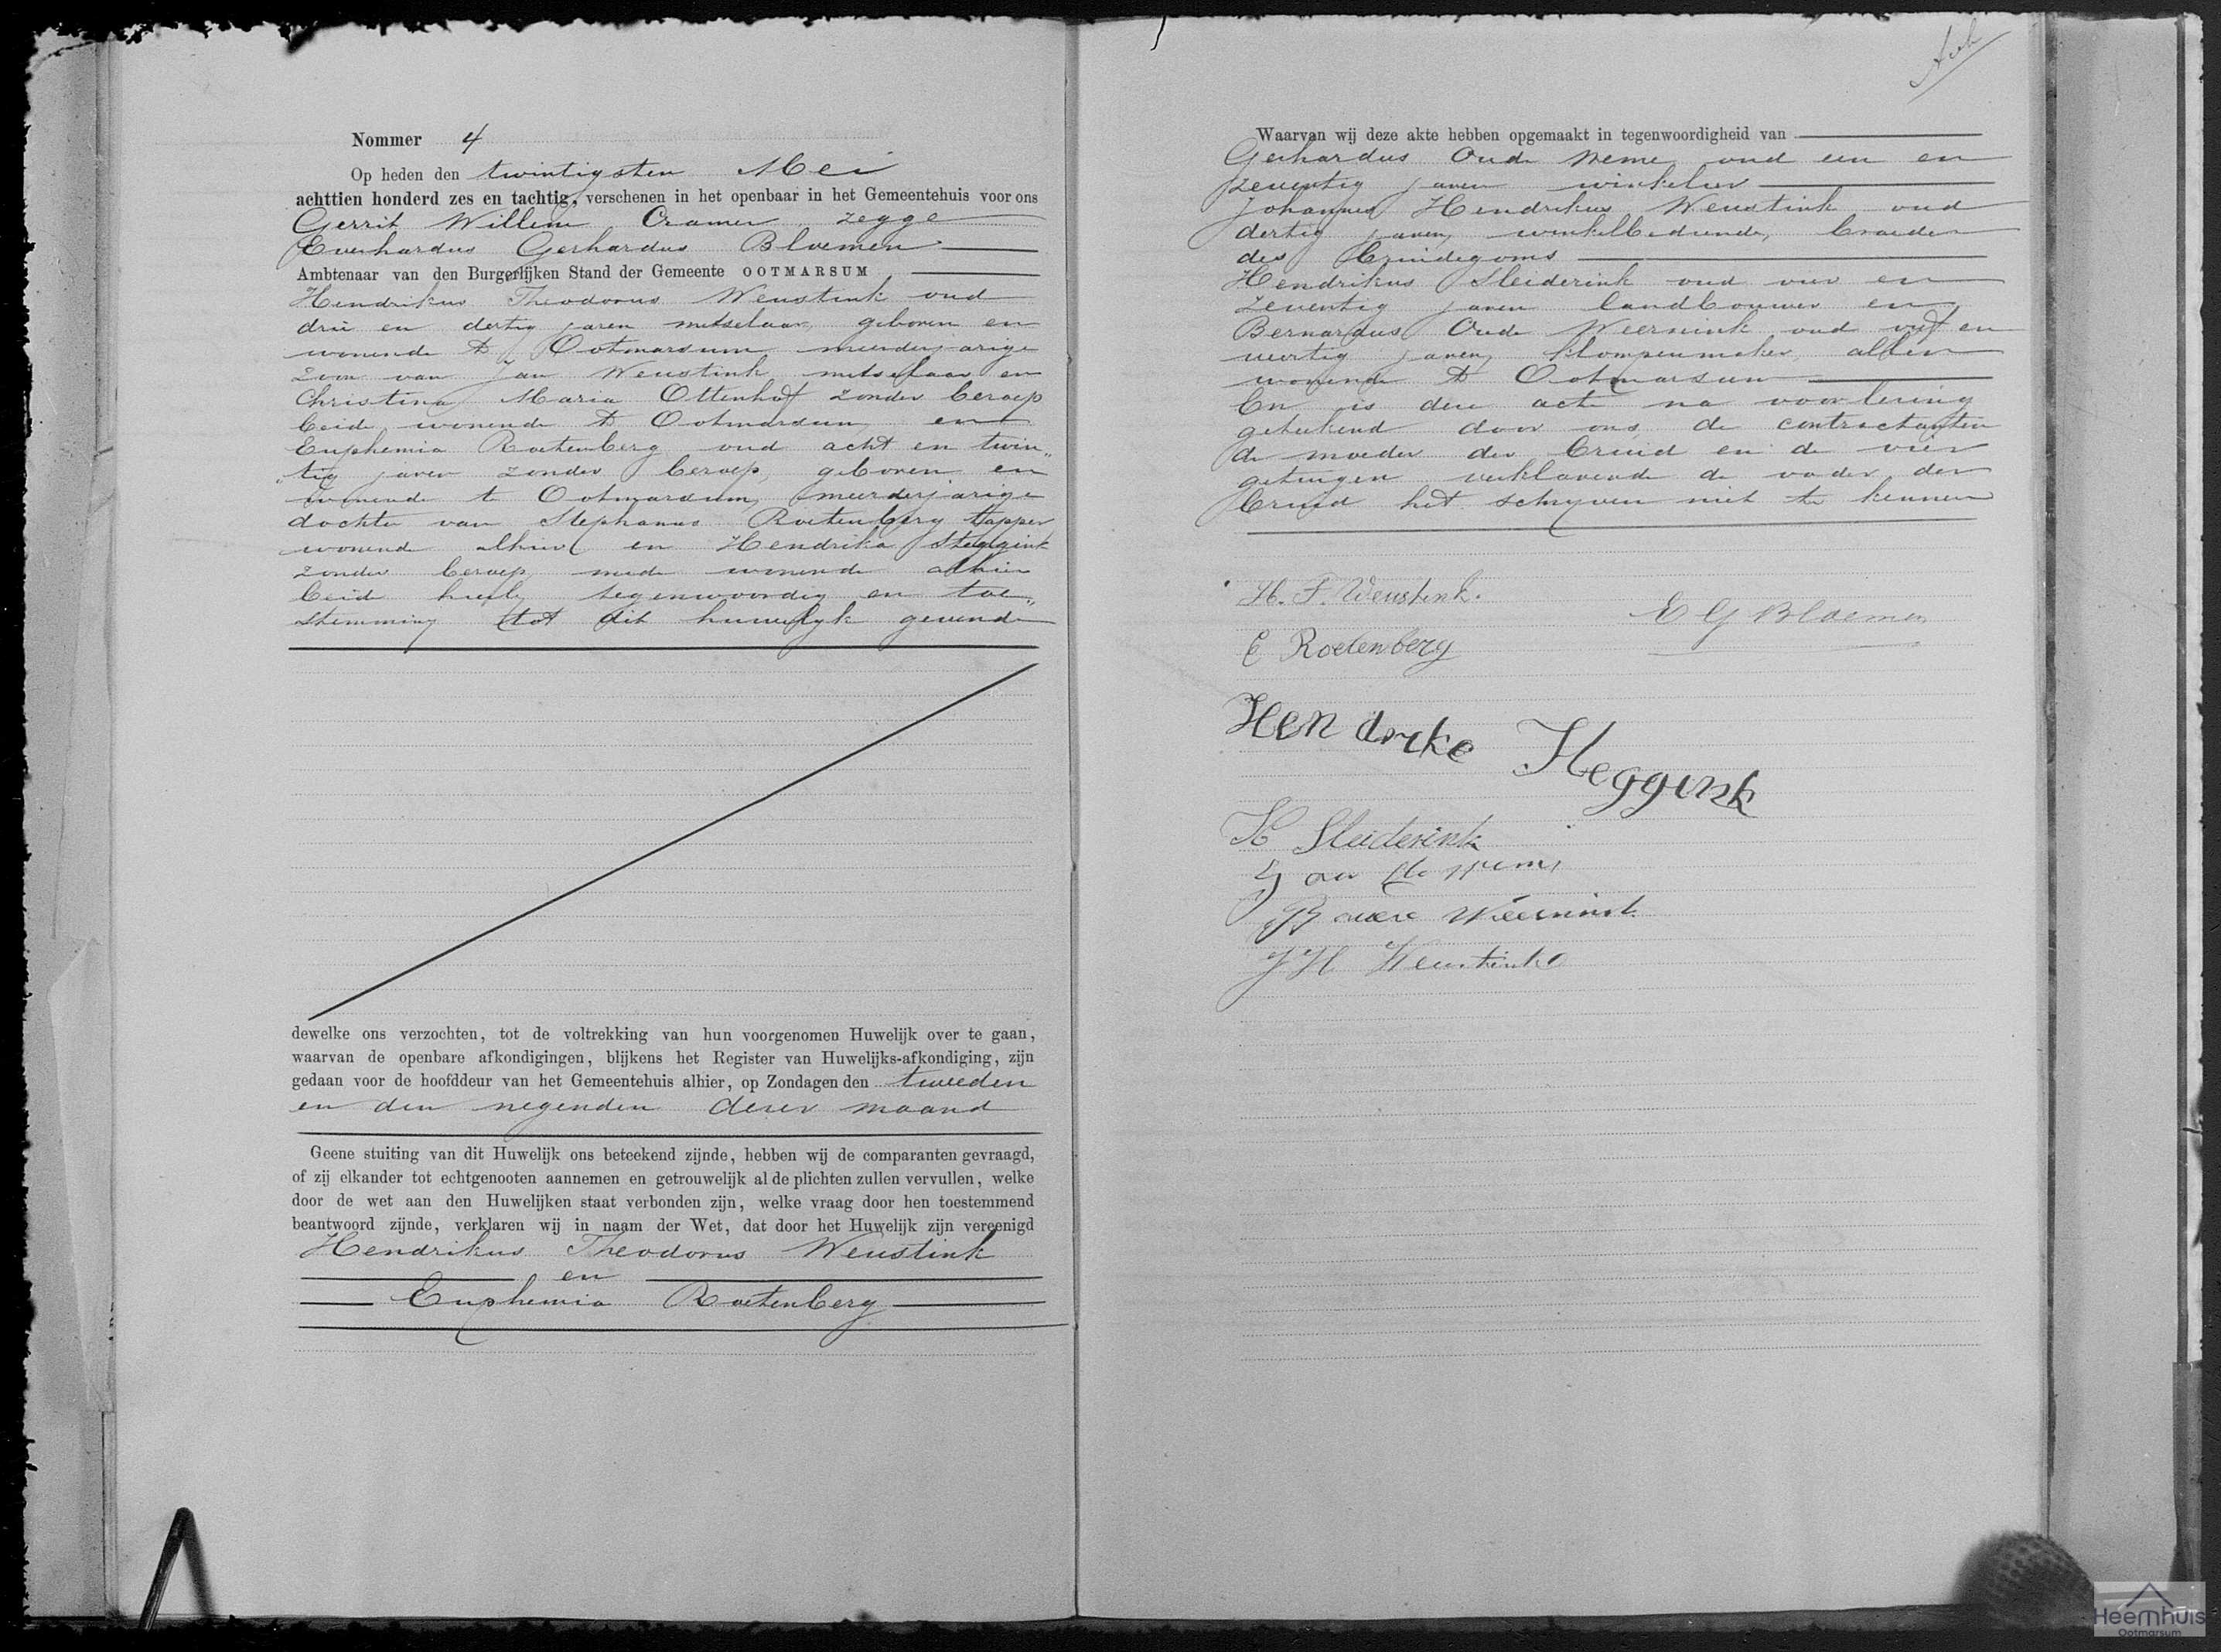 Nommer 4
Op heden den twintigsten Mei
achttien honderd zes en tachtig, verschenen in het openbaar in het Gemeentehuis voor ons
Gerrit Willem Cramer zegge
Everhardus Gerhardus Bloemen
Ambtenaar van den Burgerlijken Stand der Gemeente OOTMARSUM
Hendrikus Theodorus Weustink oud
drie en dertig jaren metselaar, geboren en
wonende te Ootmarsum meerderjarige
zoon van Jan Weustink metselaar en
Christina Maria Ottenhof zonder beroep
beide wonende te Ootmarsum en
Euphemia Roetenberg oud acht en twin„
„tig jaren zonder beroep, geboren en
wonende te Ootmarsum, meerderjarige
dochter van Stephanus Roetenberg tapper
wonende alhier en Hendrika Heggink
zonder beroep mede wonende alhier
beide hierbij tegenwoordig en toe„
stemming tot dit huwelyk gevende
dewelke ons verzochten, tot de voltrekking van hun voorgenomen Huwelijk over te gaan,
waarvan de openbare afkondigingen, blijkens het Register van Huwelijks-afkondiging, zijn
gedaan voor de hoofddeur van het Gemeentehuis alhier, op Zondagen den tweeden
en den negenden dezer maand
Geene stuiting van dit Huwelijk ons beteekend zijnde, hebben wij de comparanten gevraagd,
of zij elkander tot echtgenooten aannemen en getrouwelijk al de plichten zullen vervullen, welke
door de wet aan den Huwelijken staat verbonden zijn, welke vraag door hen toestemmend
beantwoord zijnde, verklaren wij in naam der Wet, dat door het Huwelijk zijn vereenigd
Hendrikus Theodorus Weustink
en
Euphemia Roetenberg
Waarvan wij deze akte hebben opgemaakt in tegenwoordigheid van
Gerhardus Oude Weme oud een en
zeventig jaren winkelier
Johannes Hendrikus Weustink oud
dertig jaren, winkelbediende, broeder
des bruidegoms
Hendrikus Sleiderink oud vier en
zeventig jaren landbouwer en
Bernardus Oude Weernink oud vijf en
veertig jaren klompenmaker, allen
wonende te Ootmarsum
En is deze acte na voorlezing
geteekend door ons, de contractanten
de moeder der bruid en de vier
getuigen verklarende de vader der
bruid het schryven niet te kennen
H. T. Weustink.
E G Bloemen
E Roetenberg
Hendreke Heggink
H Sleiderink
J H Weustink
Heemhuis
Ootmarsum